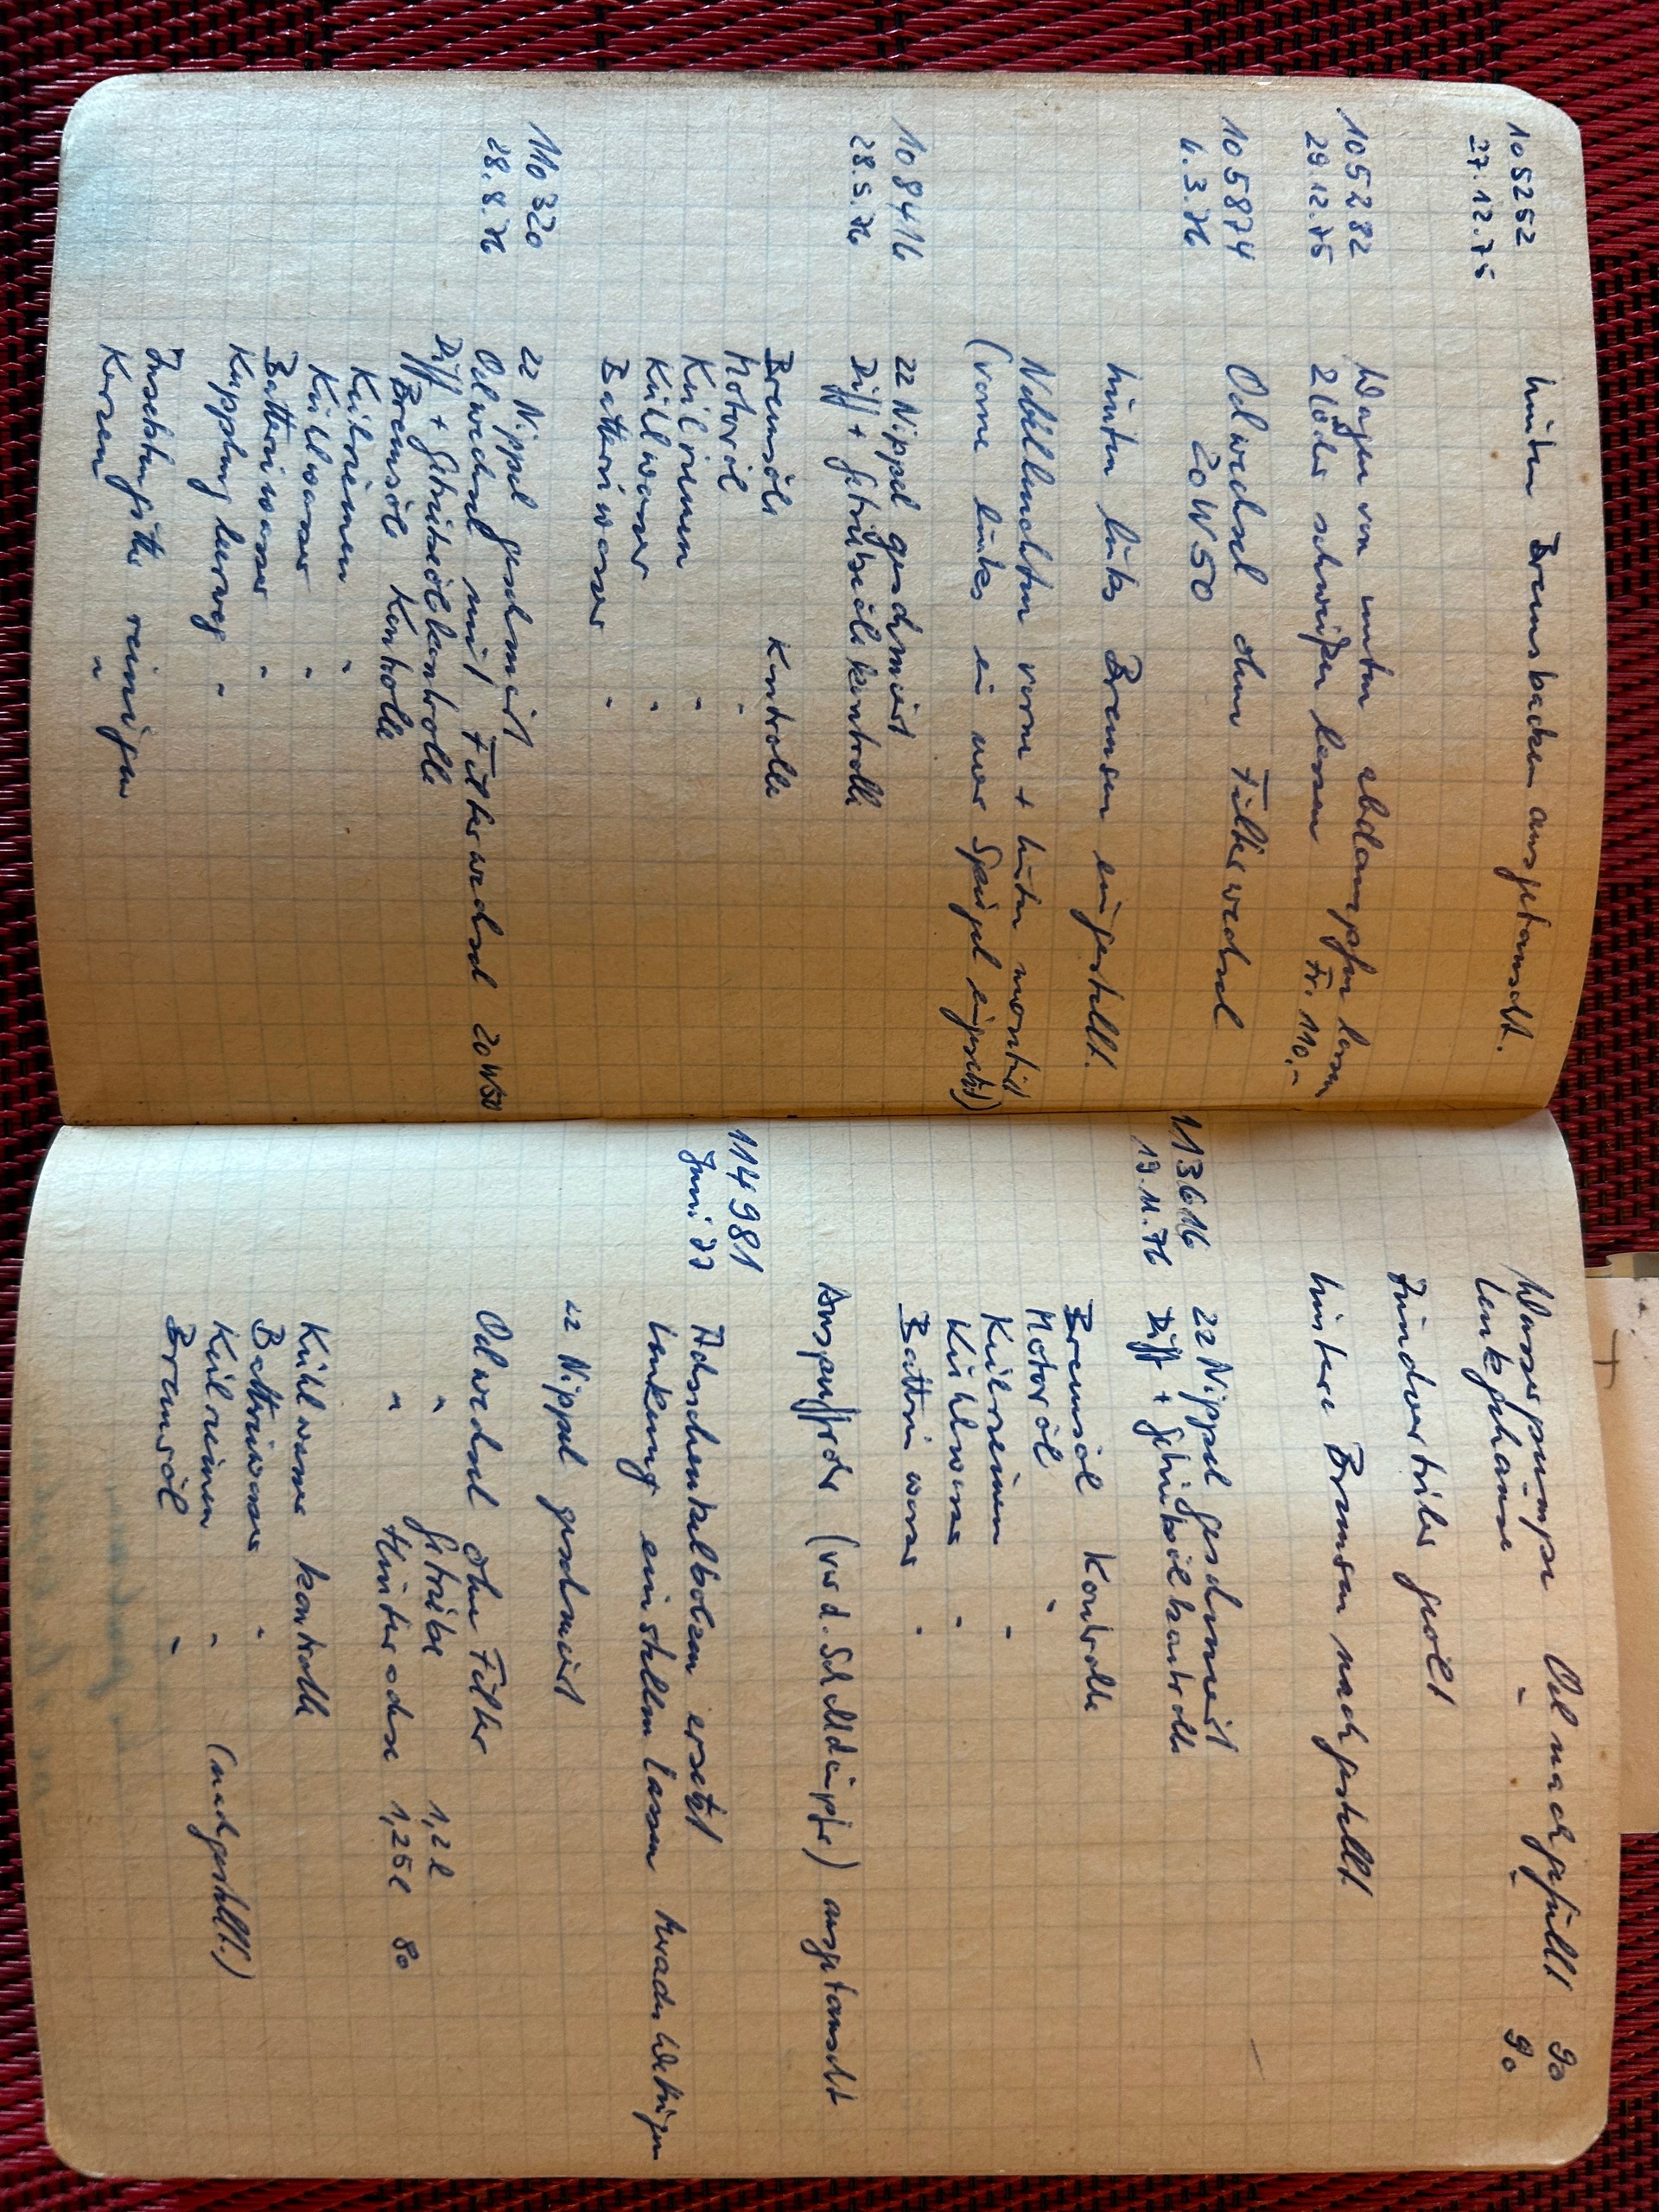 105252 hinten Bremsbacken ausgetauscht.
27.12.75
105282 Wagen von unten abdampfen lassen
29.12.75 2 Löcher schweißen lassen Fr. 110.-
105874 Oelwechsel ohne Filterwechsel
4.3.76 20W50
hinten links Bremsen eingestellt.
Nebelleuchten vorne + hinten montiert
(vorne links ein neuer Spiegel eingesetzt)
108416 22 Nippel geschmiert
28.5.76 Diff + Getriebeölkontrolle
Bremsöl Kontrolle
Motoröl "
Keilriemen "
Kühlwasser "
Batteriewasser "
110320 22 Nippel geschmiert
28.8.76 Oelwechsel mit Filterwechsel 20W50
Diff + Getriebeölkontrolle
Bremsöl Kontrolle
Keilriemen "
Kühlwasser "
Batteriewasser "
Kupplung leerweg "
Insektengitter reinigen
Kerzen "
Wasserpumpe Oel nachgefüllt 90
Lenkgehäuse " " 90
Zündverteiler geölt
hintere Bremsen nachgestellt
113616 22 Nippel geschmiert
19.11.76 Diff + Getriebeölkontrolle
Bremsöl Kontrolle
Motoröl "
Keilriemen "
Kühlwasser "
Batteriewasser "
Auspuffrohr (vor d. Schalldämpfer) ausgetauscht
114981 Achsschenkelbolzen ersetzt
Juni 77 Lenkung einstellen lassen
22 Nippel geschmiert
Oelwechsel ohne Filter
" Getriebe 1,2 l
" Hinterachse 1,25 l 80
Kühlwasser kontrolle
Batteriewasser "
Keilriemen " (nachgestellt.)
Bremsöl "